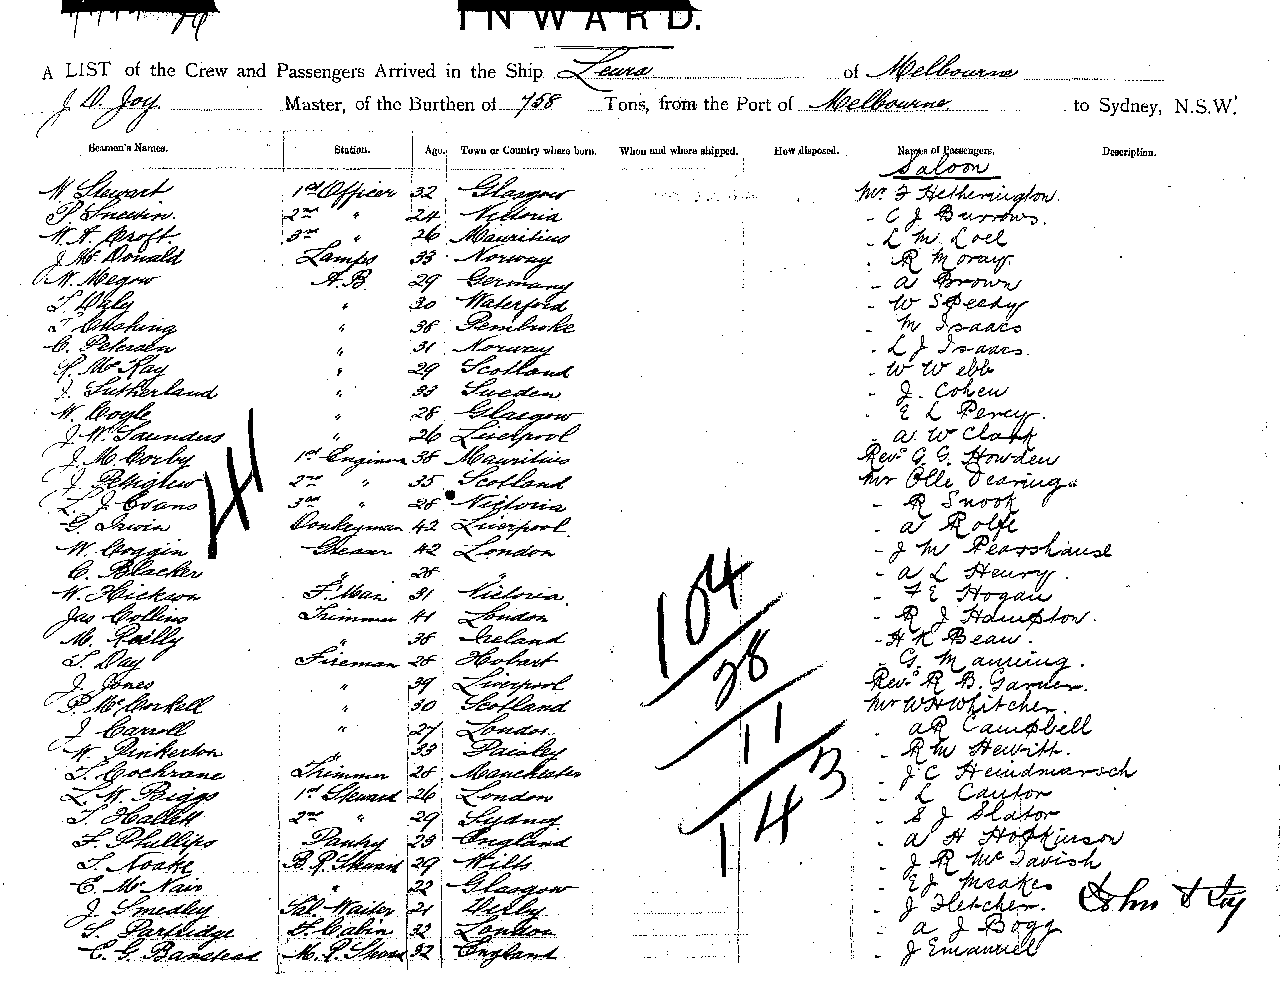 INWARD.
A LIST of the Crew and Passengers Arrived in the Ship Leura of Melbourne
J. D. Joy Master, of the Burthen of 758 Tons, from the Port of Melbourne to Sydney, N.S.W.
Seamen's Names. Station. Age. Town or Country where born. When and where shipped. How disposed. Names of Passengers. Description.
Saloon
W Stewart 1st Officer 32 Glasgow Mr. F Hetherington
2nd " 24 Victoria - C J Burrows
W. A. Croft 3rd " 26 Mauritius - L M Loel
J. McDonald Lamps 33 Norway - R Moray
W. Megow A.B. 29 Germany - A Brown
T Daly " 30 Waterford - W Speedy
T Cushing " 38 Pembroke - M Isaacs
C. Petersen " 31 Norway - L J Isaacs
R. McKay " 29 Scotland - W Webb
J. Sutherland " 33 Sweden - J. Cohen
W. Coyle " 28 Glasgow - E L Percy.
J. W. Saunders " 26 Liverpool - A W Clark
J. M Corby 1st Engineer 38 Mauritius Revd G. G. Howden
J. Pettigrew 2nd " 35 Scotland Mr Olle Dearing
L. J. Evans 3rd " 28 Victoria - R Snook
G. Irwin Donkeyman 42 Liverpool - A Rolfe
W. Goggin Greaser 42 London - J M
C. Blacker " 28 " - A L Henry.
W. Hickson F'Man 31 Victoria - F E Hogan
Jas Collins Trimmer 41 London - R J Hampton.
M. Reilly " 38 Ireland - H K Bean.
T. Day Fireman 28 Hobart - G. Manning.
J. Jones " 39 Liverpool Revd R B. Garner.
P. McCorkell " 30 Scotland Mr W H Whitcher.
J Carroll " 27 London - A R Campbell
W. Pinkerton " 33 Paisley - R M Hewitt.
T. Cochrane Trimmer 28 Manchester - J C Heindmarsch
L. N. Biggs 1st Steward 26 London - L Cantor
T Hallett 2nd " 29 Sydney - S J Slator
F. Phillips Pantry 23 England - A H Hopkinson
T. Noake B. R. Steward 29 Wilts - J R McTavish
E. McNair " 22 Glasgow - E J Meakes
J Smedley Sal. Waiter 21 Derby - J Fletcher.
S. Partridge F. Cabin 32 London - A J Bogg
C. G. Banstead M. R. Steward 32 England - J Emanuel
41
104
28
11
143